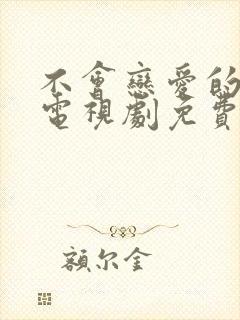 不會戀愛的
電視劇免費
額尔金